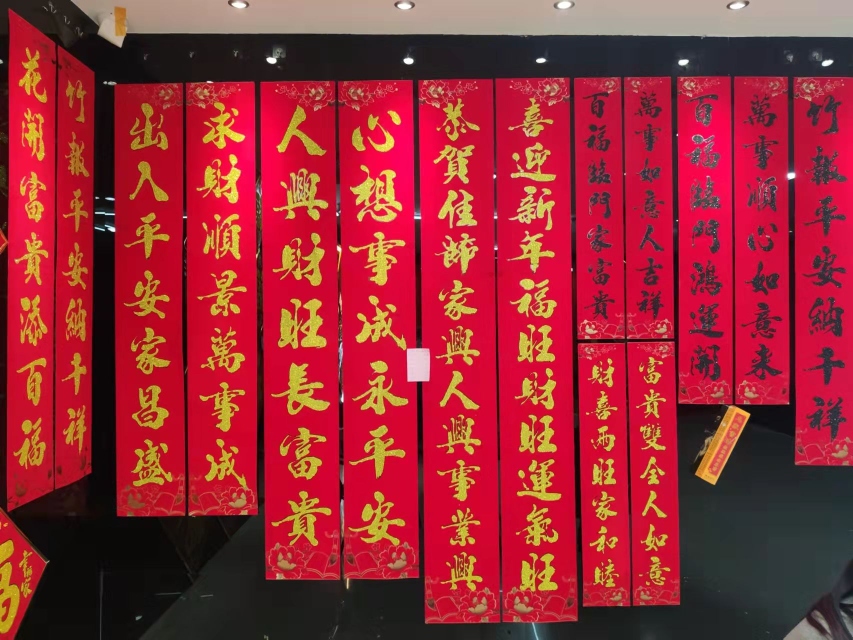 竹報平安納千祥
萬事順心如意来
百福臨門鴻運開
萬事如意人吉祥
百福臨門家富貴
富貴雙全人如意
財喜兩旺家和睦
喜迎新年福旺財旺運氣旺
恭賀佳節家興人興事業興
心想事成永平安
人興財旺長富貴
求財順景萬事成
出入平安家昌盛
竹報平安納千祥
花開富貴添百福